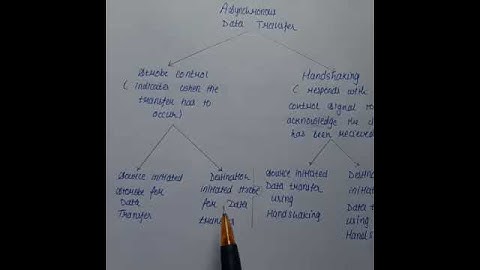 Asynchronous
Data Transfer
Strobe Control
( indicates when the
transfer has to
occur)
Handshaking
( responds with
control signal to
acknowledge the d
has been recieved
Source initiated
strobe for
Data
Transfer
Destination
initiated strobe
for Data
transfer
Source initiated
Data transfer
using
Handshaking
Destina
initiated
Data t
using
Hands